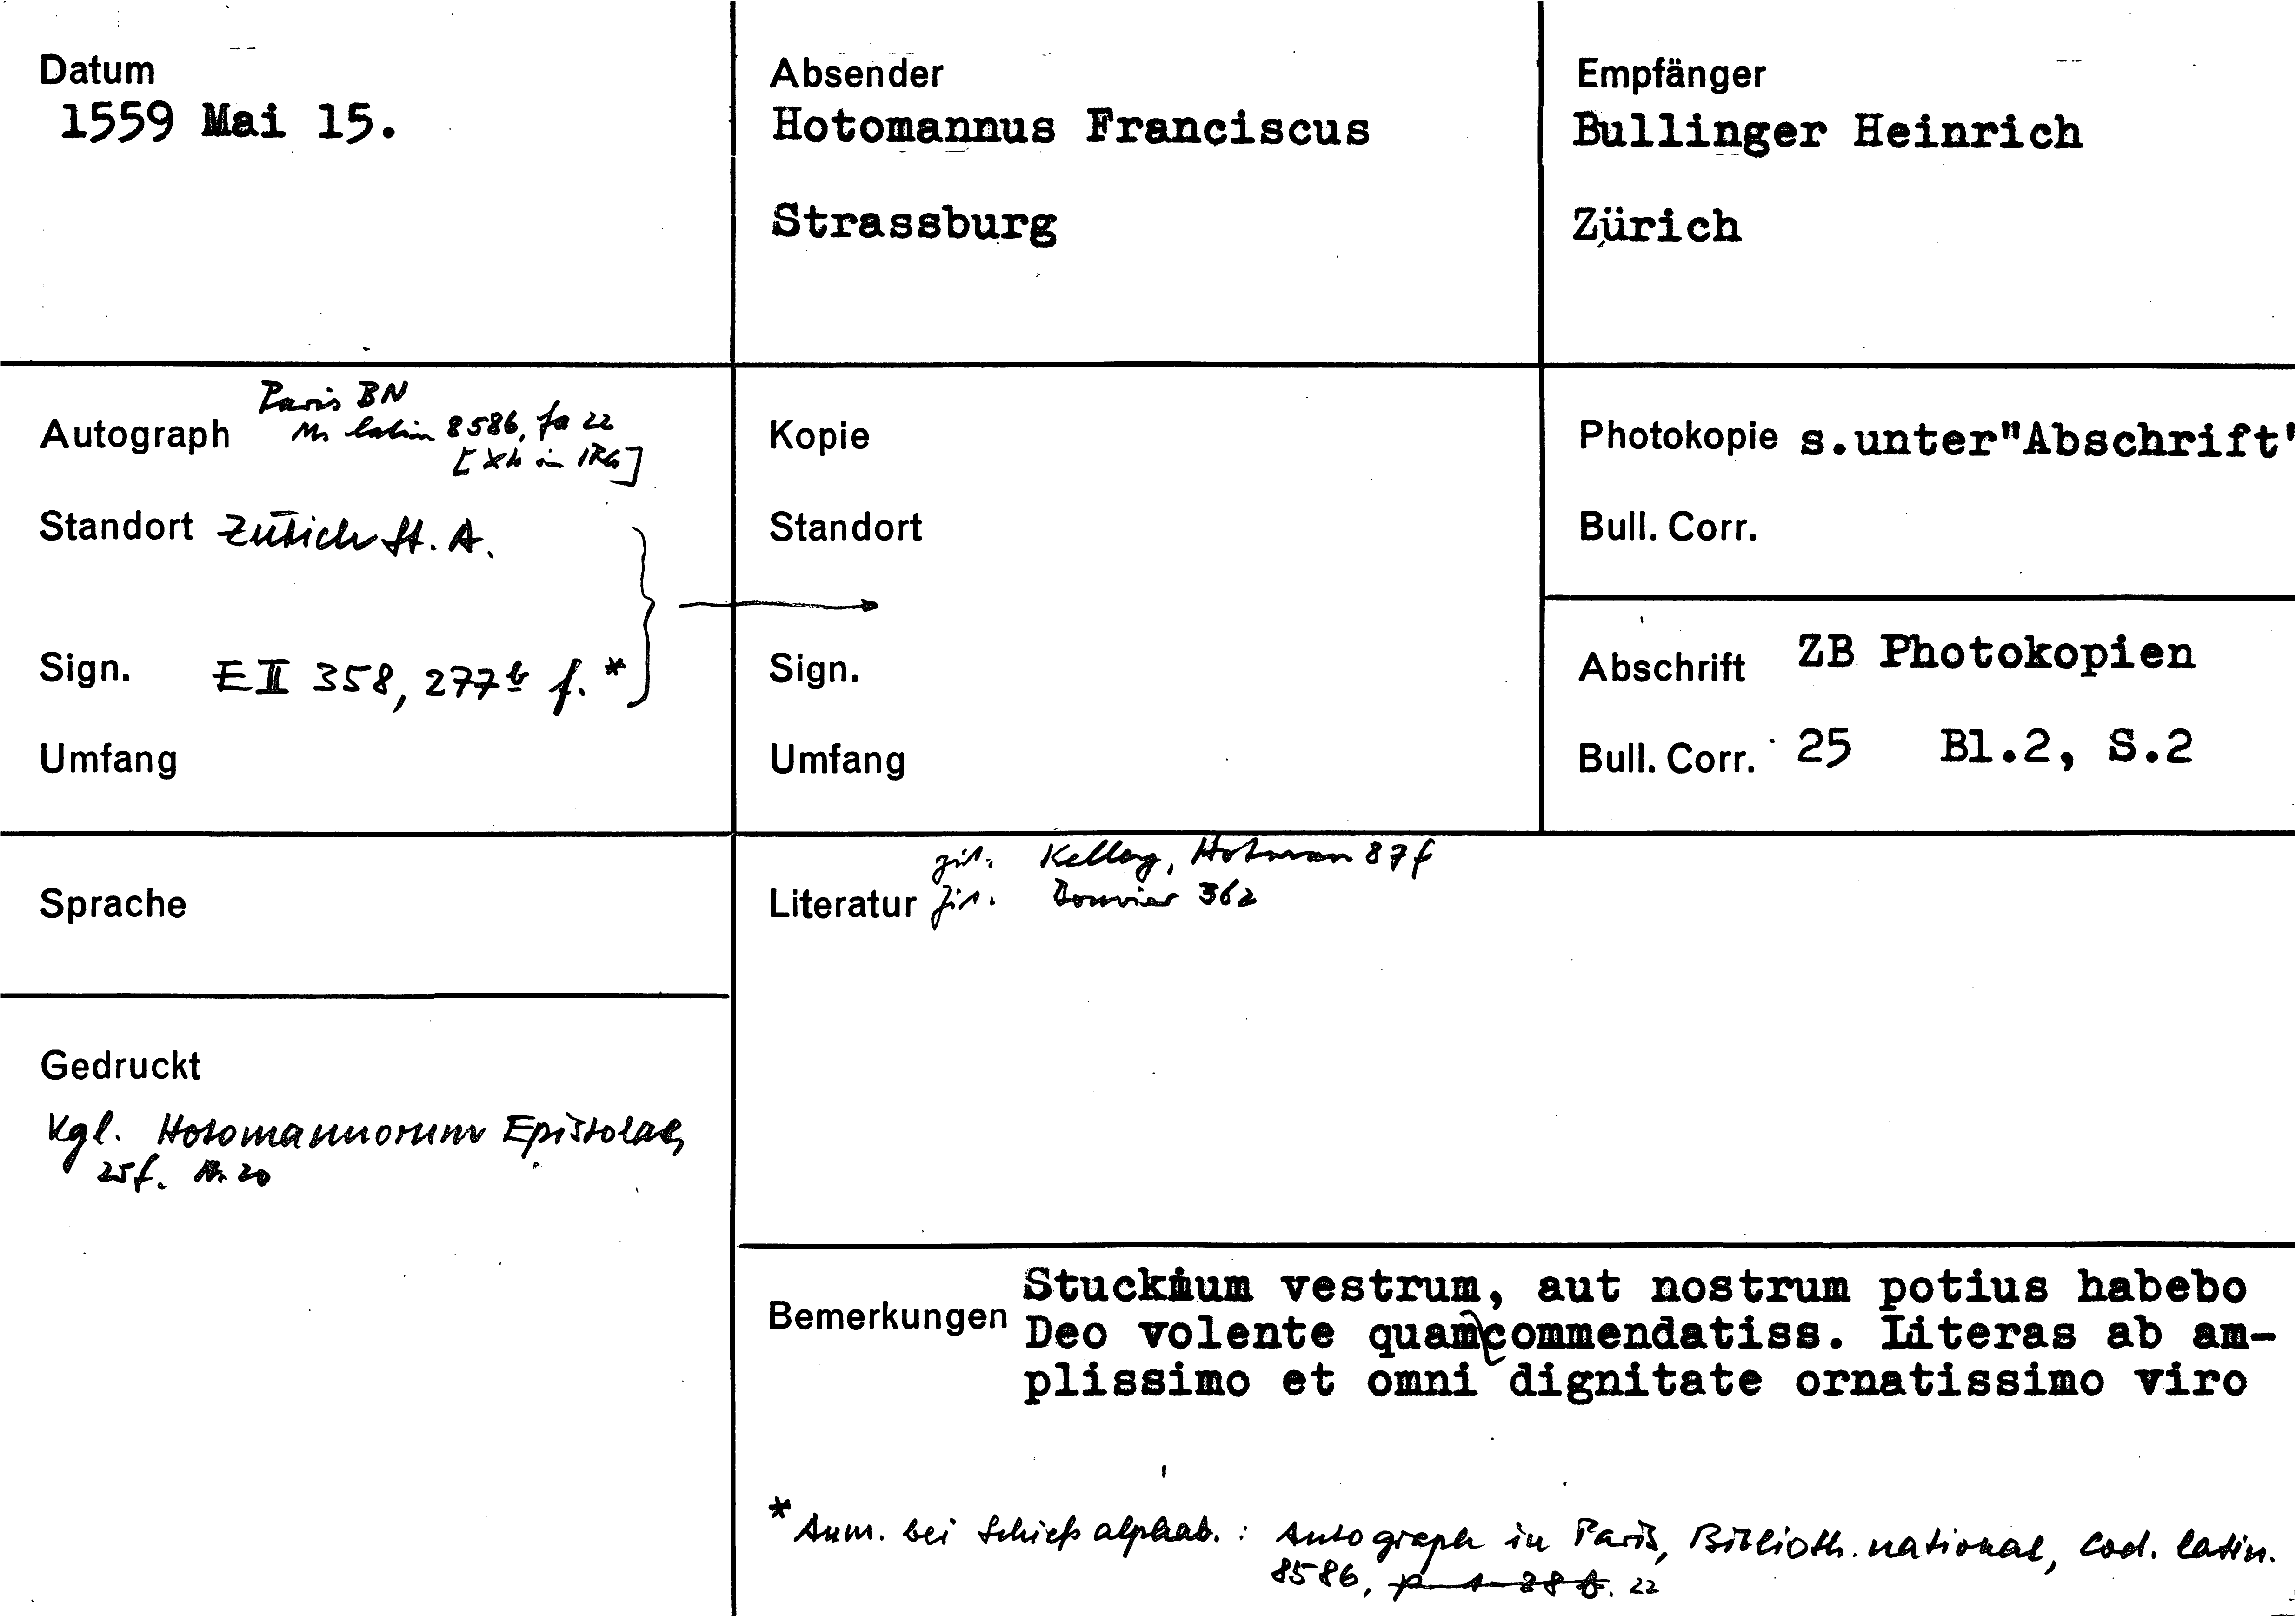 Datum
1559 Mai 15.
Absender
Hotomannus Franciscus
Strassburg
Empfänger
Bullinger Heinrich
Zürich
Autograph Paris BN
Ms latin 8586, fo 22
[Xk in IRG]
Standort Zürich St. A.
Sign. E II 358, 277b f. *
Umfang
Kopie
Standort
Sign.
Umfang
Photokopie s.unter"Abschrift"
Bull. Corr.
Abschrift ZB Photokopien
Bull. Corr. 25 Bl.2, S.2
Sprache
Gedruckt
Vgl. Hotomannorum Epistolae,
25f. Nr. 20
zit. Kelley, Hotman 87f
Literatur zit. Bouvier 362
Bemerkungen Stuckium vestrum, aut nostrum potius habebo
Deo volente quam commendatiss. Literas ab am-
plissimo et omni dignitate ornatissimo viro
* Anm. bei Schieß alphab.: Autograph in Paris, Biblioth. national, Cod. latin.
8586, 22